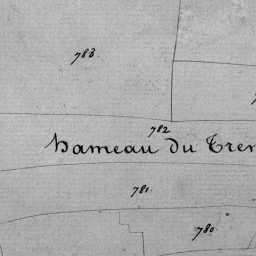 783.
782
hameau du Tren
781.
780.